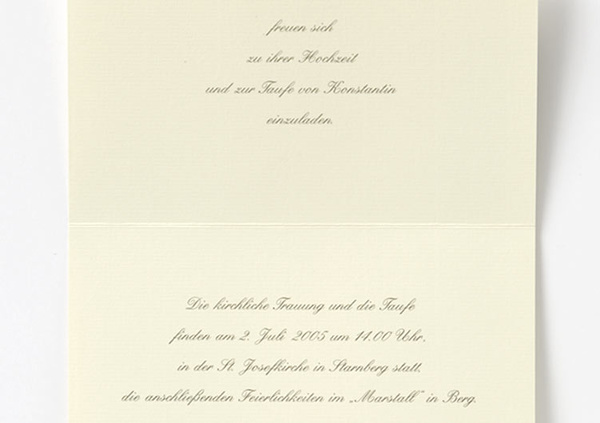 freuen sich
zu ihrer Hochzeit
und zur Taufe von Konstantin
einzuladen.
Die kirchliche Trauung und die Taufe
finden am 2. Juli 2005 um 14.00 Uhr,
in der St. Josefkirche in Starnberg statt,
die anschließenden Feierlichkeiten im „Marstall" in Berg.